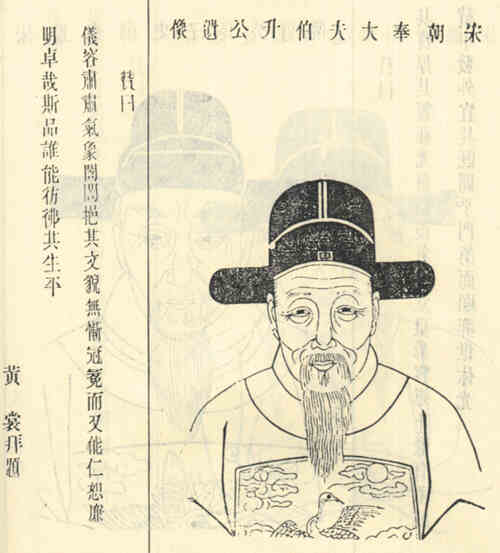 宋朝奉大夫伯升公遺像
贊曰
儀容肅肅氣象誾誾挹其文貌無慚冠冕而又能仁想廉
明卓哉斯品誰能彷彿其生平
黃裳拜題